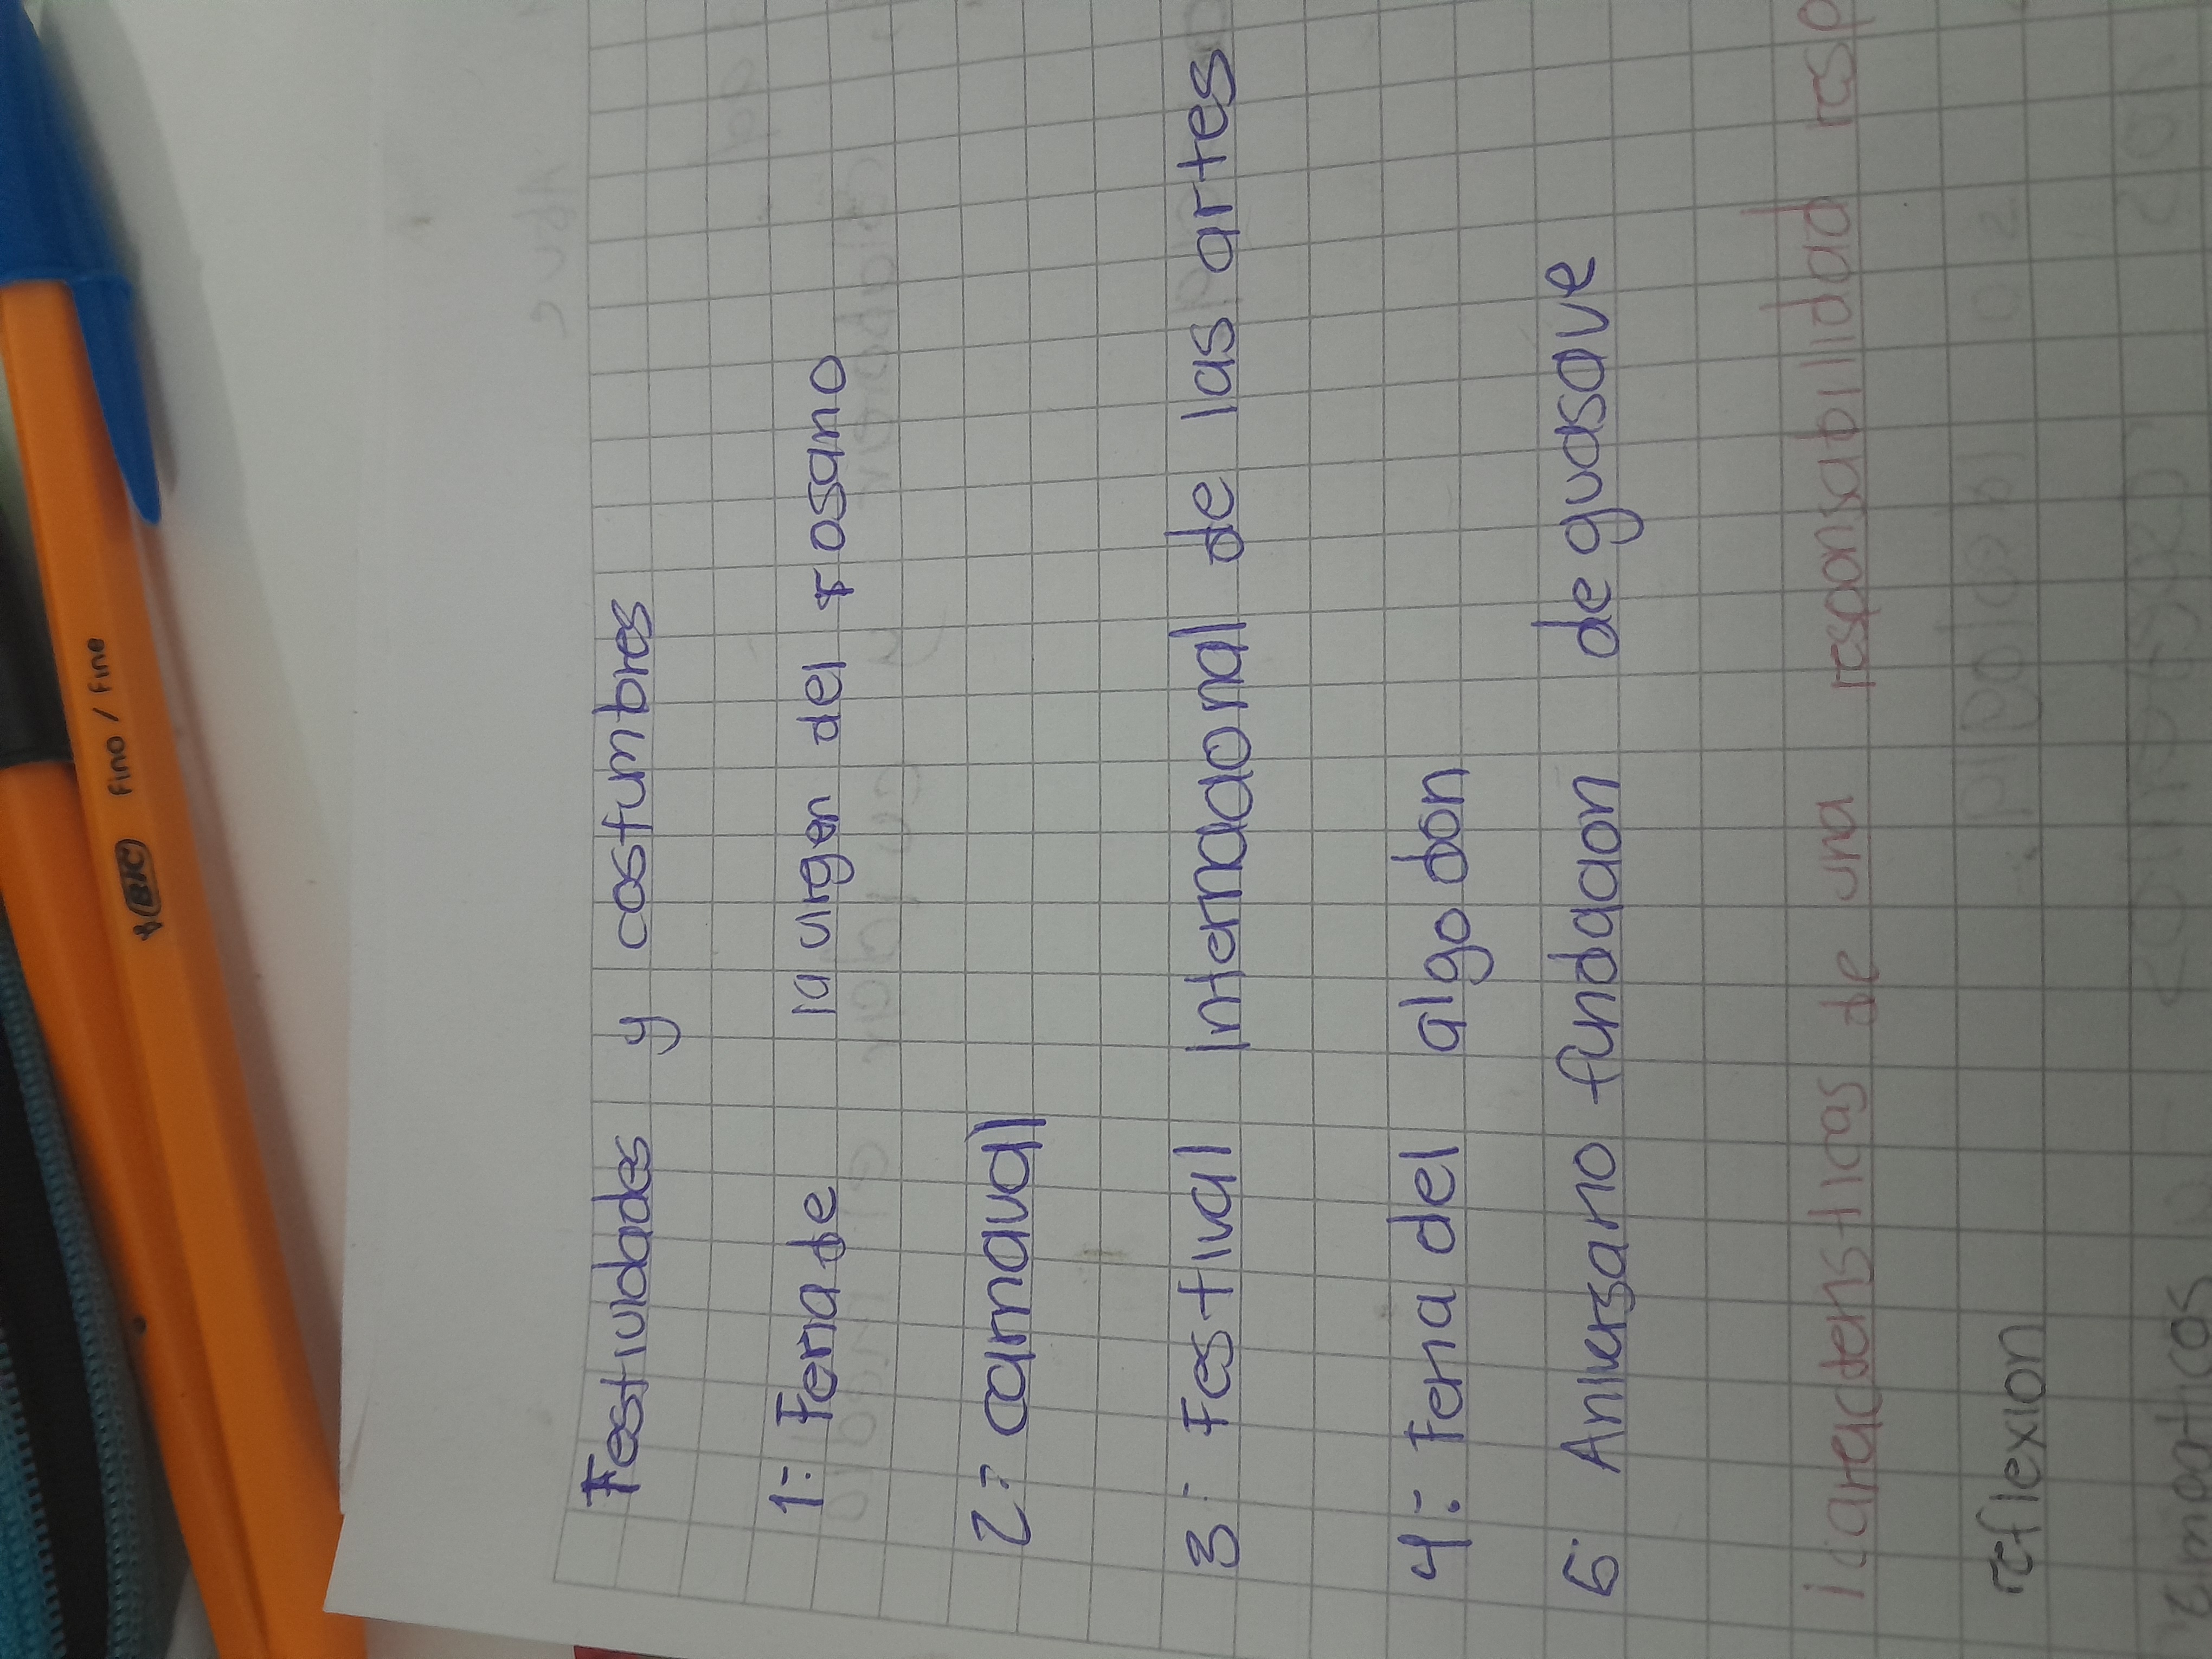 Festividades y costumbres
1: Feria de la virgen del rosario
2: carnaval
3: Festival Internacional de las artes
4: Feria del algodon
5: Aniversario fundacion de guasave
caracteristicas de una responsabilidad resp
reflexion
BIC fino / fine